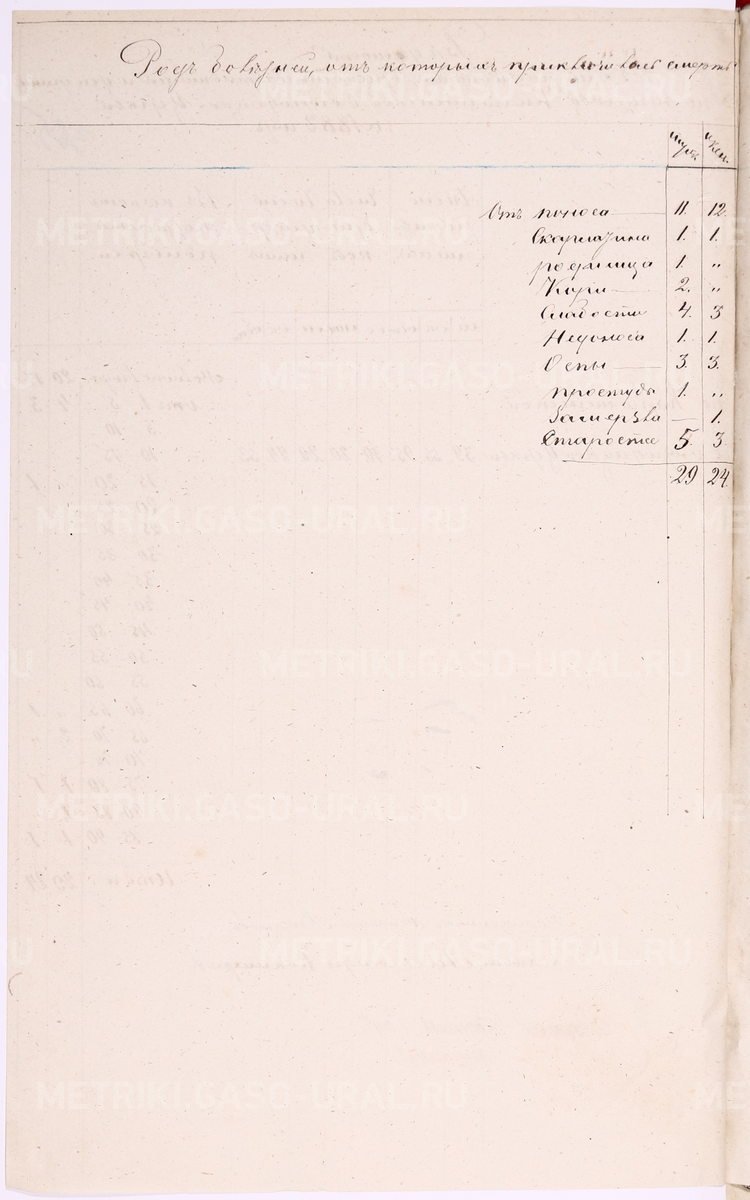 Родъ болѣзней, отъ которыхъ приключилась смерть
муж. жен.
Отъ поноса 11. 12.
Скарлатина 1. 1.
родимца 1. "
Кори 2. "
Слабости 4. 3
Недоноса 1. 1.
Оспы 3. 3.
простуды 1. "
Замерзла — 1.
Старости 5 3
29 24.
METRIKI.GASO-URAL.RU